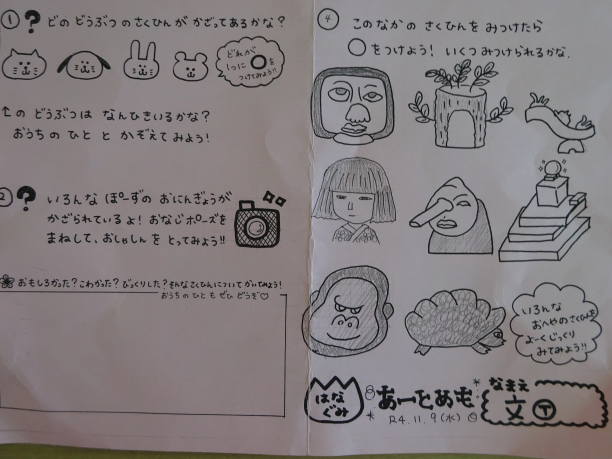 ① ? どの どうぶつ の さくひんが かざってあるかな?
どれか
1つに ○を
つけてみよう!!
↑の どうぶつは なんひきいるかな?
おうちの ひと と かぞえて みよう!
② ? いろんな ぽーずの おにんぎょうが
かざられているよ! おなじポーズを
まねして、おしゃしんを とってみよう!!
おもしろかった? こわかった? びっくりした? そんなさくひんについて かいてみよう!
おうちの ひと も ぜひ どうぞ♡
④ このなかの さくひんを みつけたら
○をつけよう! いくつ みつけられるかな.
いろんな
おへやのさくひんを
よーく じっくり
みてみよう!!
はな
ぐみ
あーとめも
R4.11.9(水)
なまえ
文 T